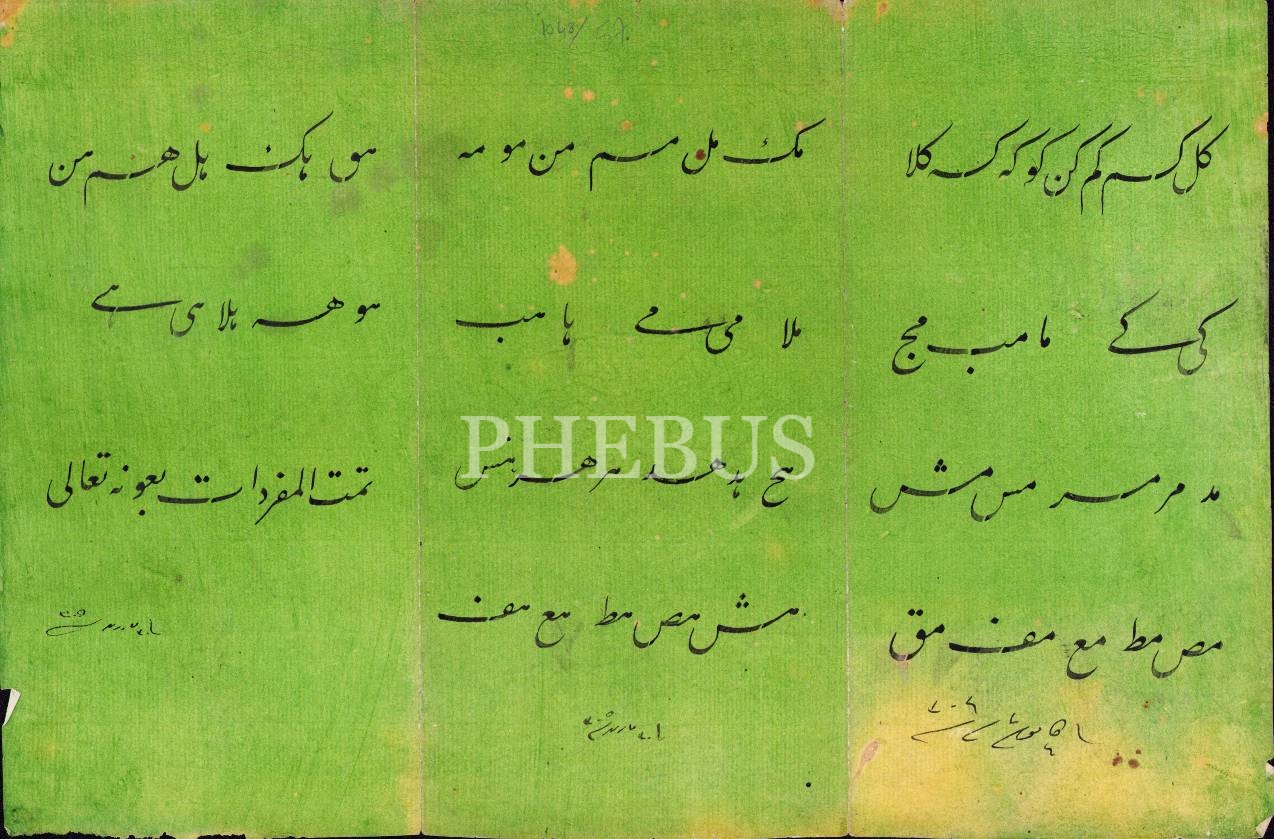 كل كسم كم كن كو كه كسه كلا
كى كے ما مب مج
مد مر مسر مس مش
مص مط مع مف مق
مك مل مسم من مو مه
ملا مى مے ها هب
هج هد هسد هر هسر هس
هش هص هط هع هف
هق هك هل هسم هن
هو هسه هلا هى هے
تمت المفردات بعونه تعالى
PHEBUS